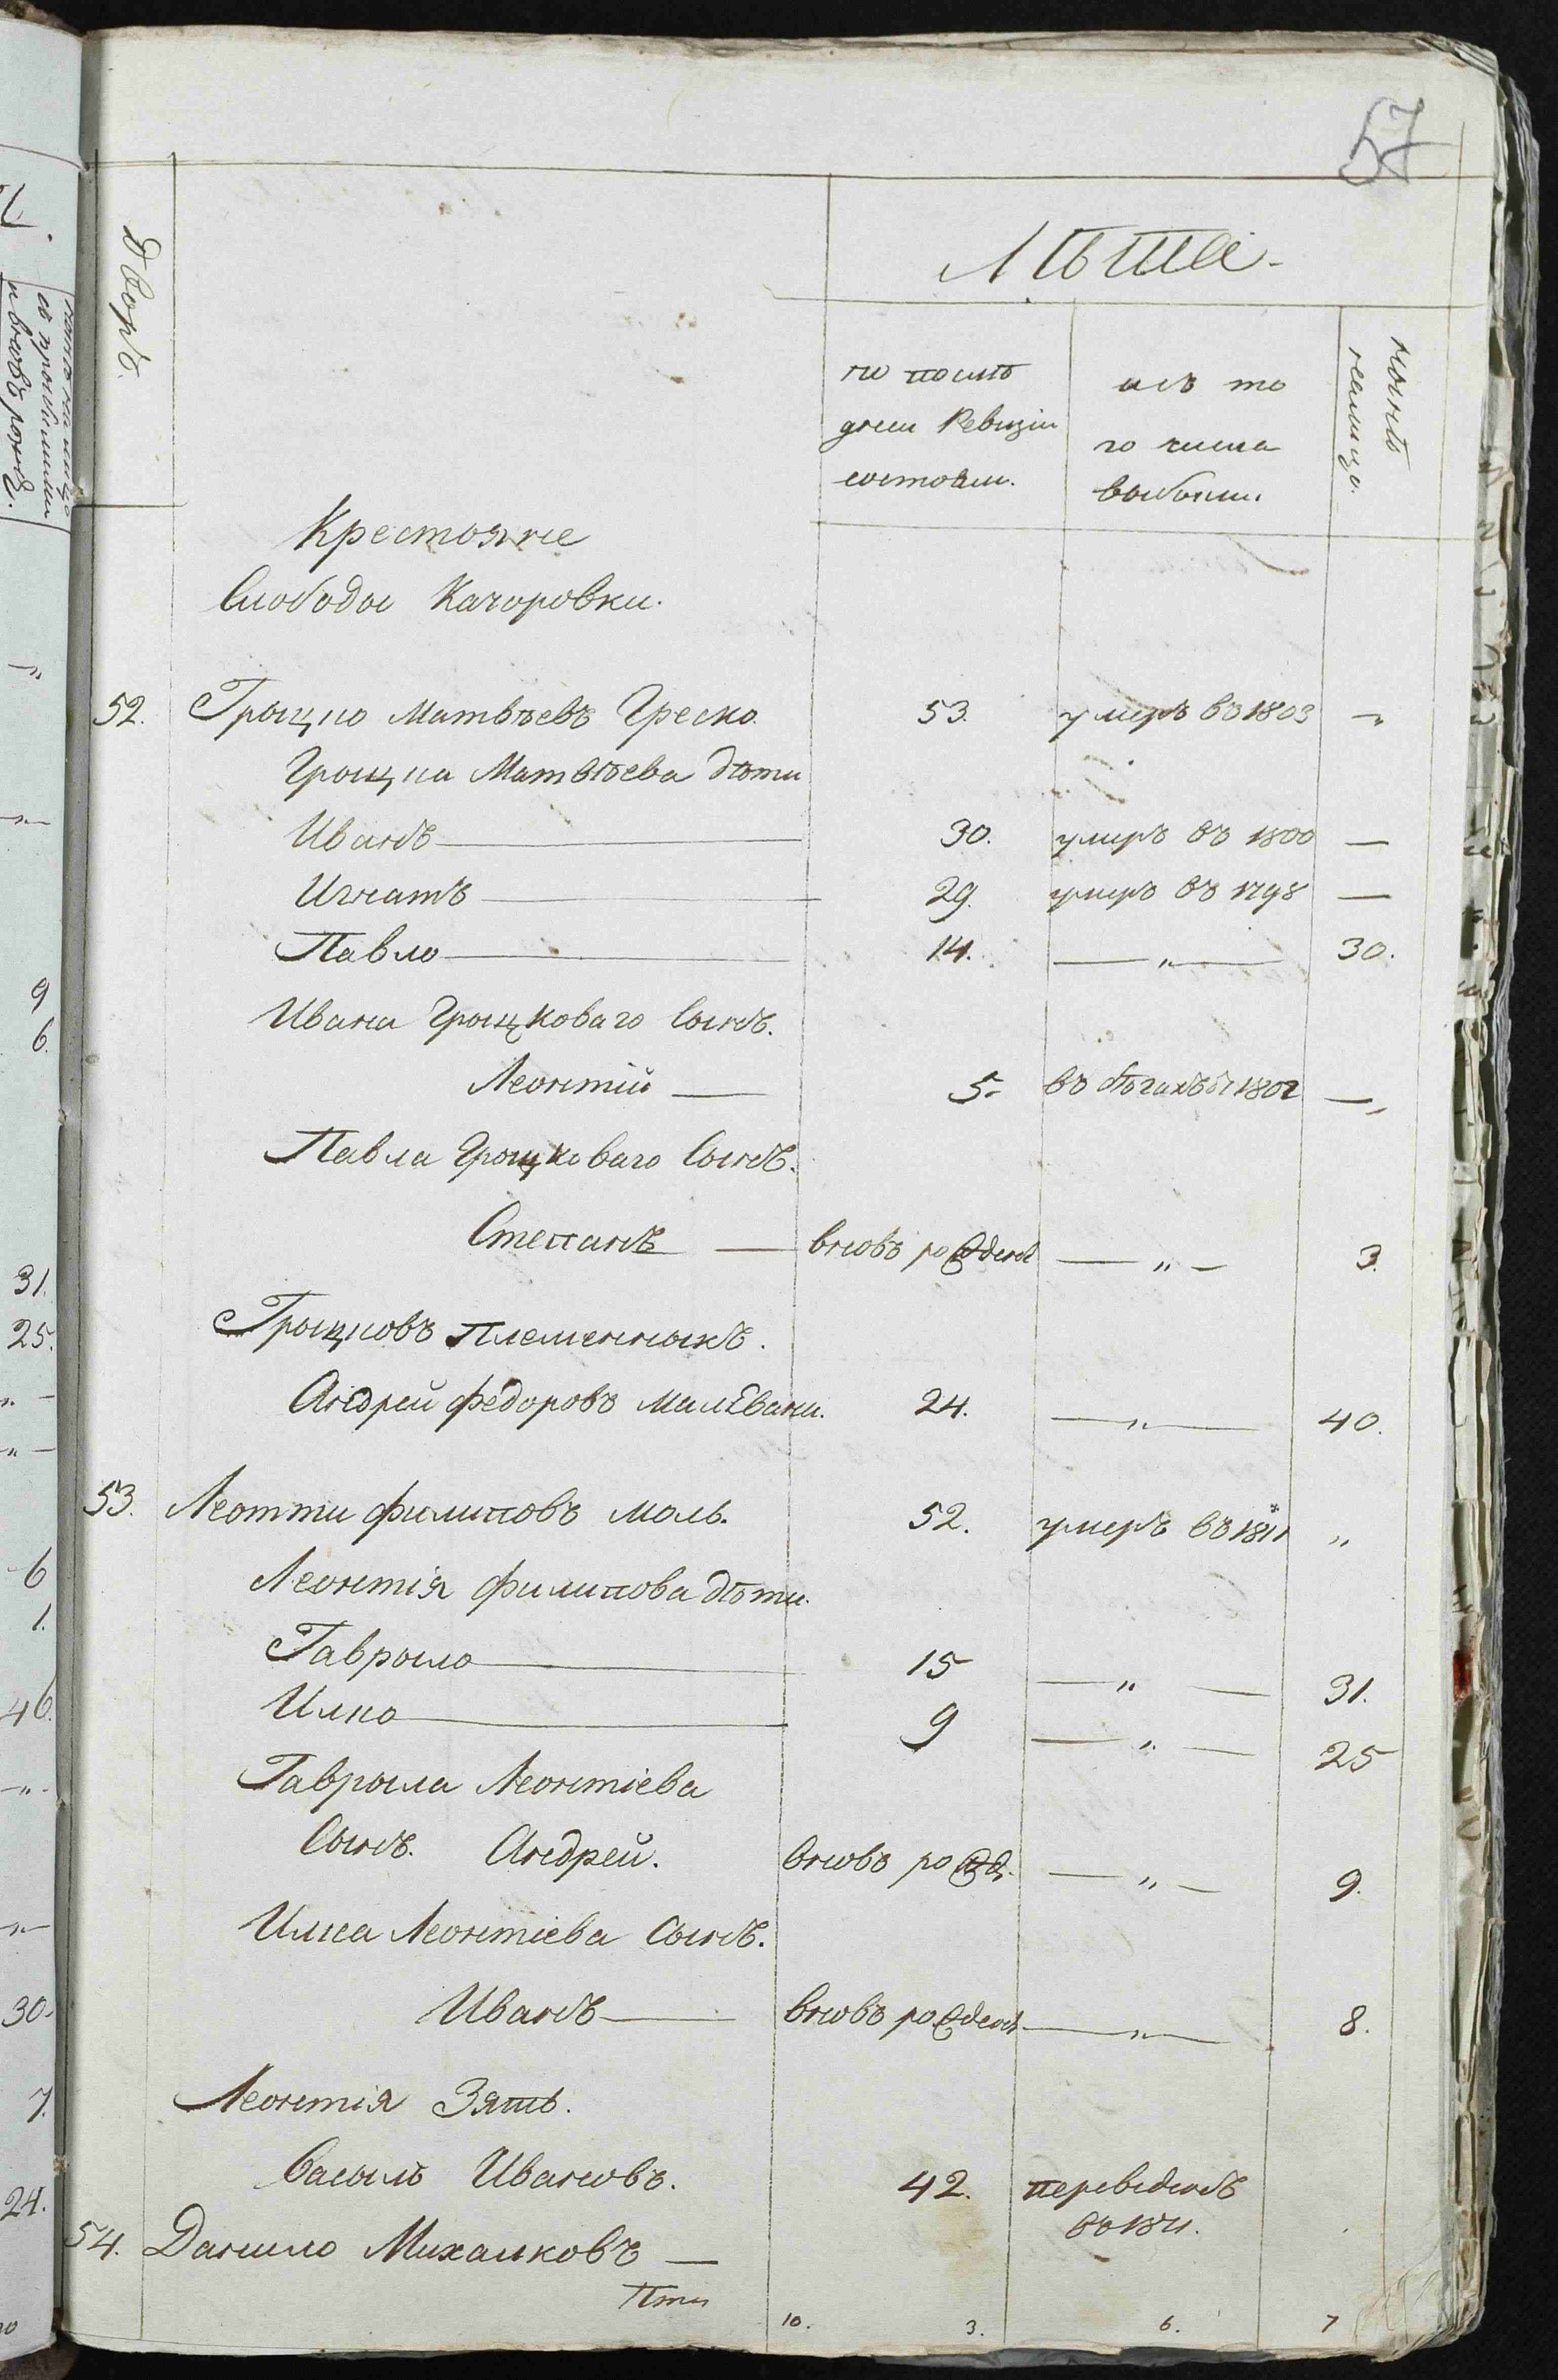 57
Дворъ.
Лѣта.
по послѣ
дней Ревизіи
состояли.
изъ то
го числа
выбыли.
нынѣ
налицо.
Крестояне
Слободы Качоровки.
52. Грыцко Матвѣевъ Греско. 53. умеръ въ 1803 „
Грыцка Матвѣева дѣти
Иванъ — 30. умеръ въ 1800 —
Игнатъ — 29. умеръ въ 1798 —
Павло — 14. — „ — 30.
Ивана Грыцковаго Сынъ.
Леонтій — 5. въ бѣгахъ 1802 — „
Павла Грыцковаго Сынъ.
Степанъ — вновь рожденъ — „ — 3.
Грыцковъ Племенныкъ.
Андрей Федоровъ 24. — „ — 40.
53. Леонти Филиповъ Моль. 52. умеръ въ 1811 „
Леонтія Филипова дѣти.
Гаврыло — 15 — „ — 31.
Илко — 9 — „ — 25
Гаврыла Леонтіева
Сынъ. Андрей. вновь рожд. — „ — 9.
Илка Леонтіева Сынъ.
Иванъ — вновь рожденъ — „ — 8.
Леонтія Зять.
Васыль Ивановъ. 42. переведенъ
въ 1811.
54. Данило Михалковъ —
10. 3. 6. 7